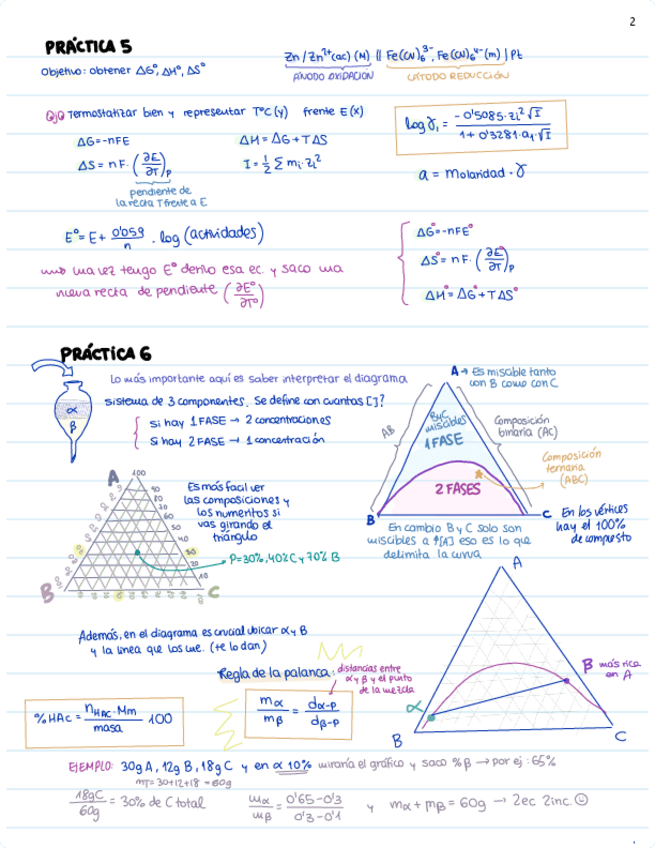 2
PRÁCTICA 5
Objetivo: obtener ΔG°, ΔH°, ΔS°
Zn / Zn²⁺(ac) (M) || Fe(CN)₆³⁻, Fe(CN)₆⁴⁻ (m) | Pt
ÁNODO OXIDACIÓN
CÁTODO REDUCCIÓN
Termostatizar bien y representar T°C (y) frente E (x)
ΔG = -nFE
ΔH = ΔG + TΔS
ΔS = nF · (∂E/∂T)p
I = 1/2 Σ mi · zi²
pendiente de
la recta T frente a E
log γi = -0'5085 · zi² √I / 1 + 0'3281 · ai · √I
a = Molaridad · γ
E° = E + 0'059/n · log (actividades)
una vez tengo E° derivo esa ec. y saco una
nueva recta de pendiente (∂E°/∂T°)
ΔG° = -nFE°
ΔS° = nF · (∂E°/∂T)p
ΔH° = ΔG° + TΔS°
PRÁCTICA 6
Lo más importante aquí es saber interpretar el diagrama
sistema de 3 componentes. Se define con cuantas []?
si hay 1 FASE → 2 concentraciones
si hay 2 FASE → 1 concentración
α
β
A → Es miscible tanto
con B como con C
AB
ByC
miscibles
1 FASE
2 FASES
Composición
binaria (AC)
Composición
ternaria
(ABC)
B
C
En los vértices
hay el 100%
de compuesto
En cambio B y C solo son
miscibles a ↑[A] eso es lo que
delimita la curva
A
B
C
100
Es más facil ver
las composiciones y
los numeritos si
vas girando el
triángulo
P=30%, 40% C y 70% B
Además, en el diagrama es crucial ubicar α y β
y la linea que los une. (te lo dan)
Regla de la palanca:
distancias entre
α y β y el punto
de la mezcla
%HAc = nHAc · Mm / masa · 100
mα / mβ = dα-p / dβ-p
A
β más rica
en A
α
B
C
EJEMPLO: 30g A, 12g B, 18g C y en α 10% miraría el gráfico y saco %β → por ej: 65%
mT = 30+12+18 = 60g
18gC / 60g = 30% de C total
mα / mβ = 0'65-0'3 / 0'3-0'1
y mα + mβ = 60g → 2ec 2inc. ☺